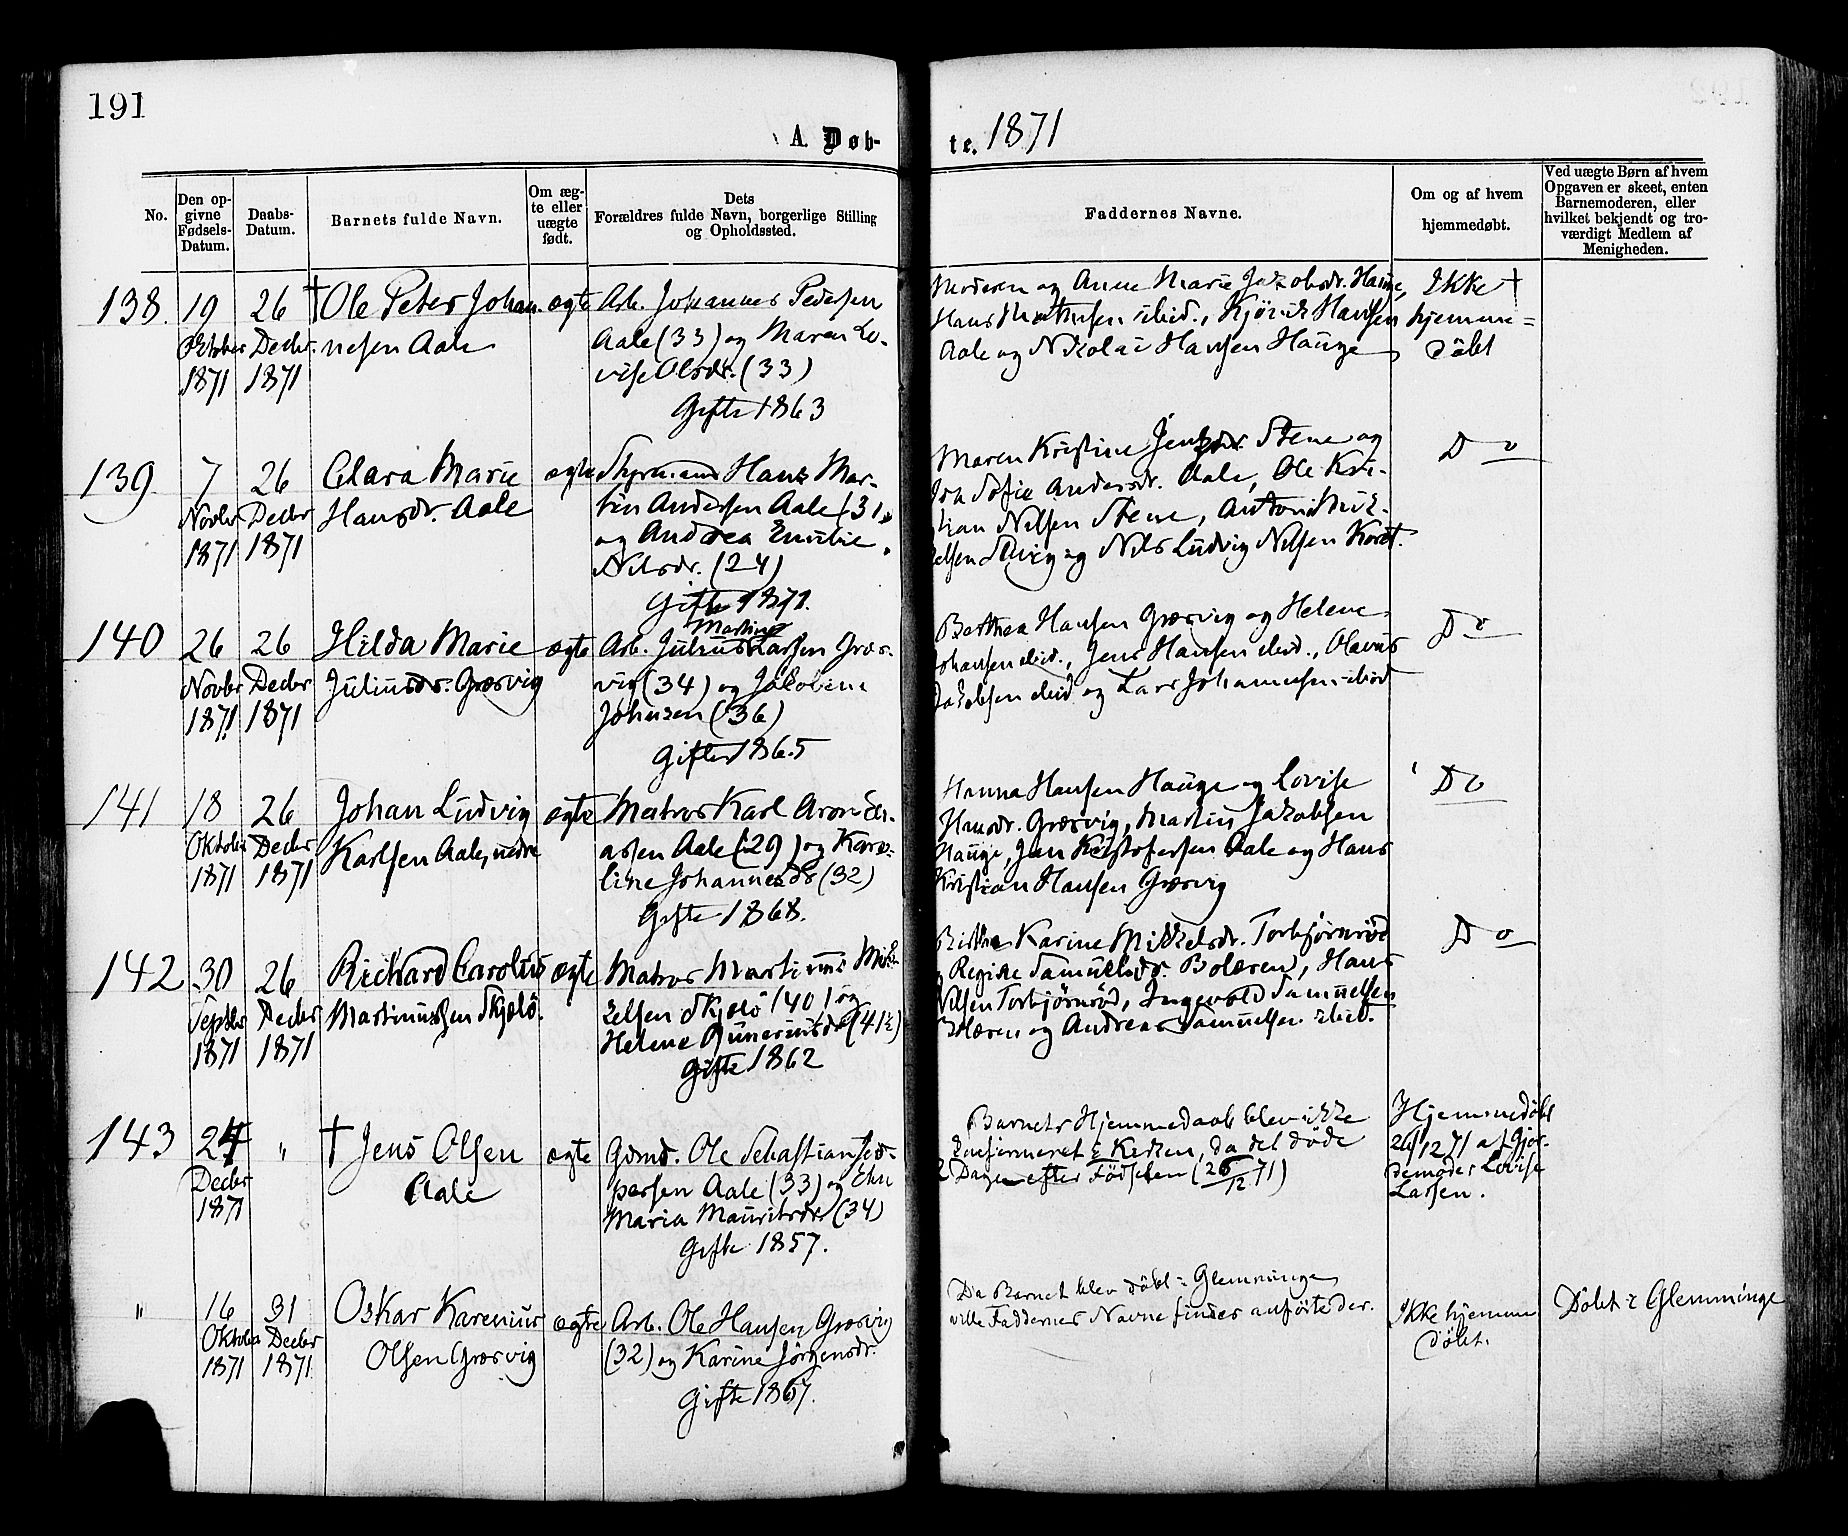 191
A. Døb-
te. 1871
No.
Den op-
givne
Fødsels-
Datum.
Daabs-
Datum.
Barnets fulde Navn.
Om æg-
te eller
uægte
født.
Dets
Forældres fulde Navn, borgerlige Stilling
og Opholdssted.
Faddernes Navne.
Om og af hvem
hjemmedøbt.
Ved uægte Børn af hvem
Opgaven er skeet, enten
Barnemoderen, eller
hvilket bekjendt og tro-
værdigt Medlem af
Menigheden.
138.
19
Oktober
1871
26
Decbr.
1871
† Ole Peter Johan-
nesen Aale
ægte
Arb. Johannes Pedersen
Aale (33) og Maren Lo-
vise Olsdr. (33)
Gifte 1863
Moderen og Anne Marie Jakobsdr. Hauge,
Hans ibid., Hansen
Aale og Nikolai Hansen Hauge
Ikke †
hjemme=
døbt
139
7
Novbr
1871
26
Decbr
1871
Clara Marie
Hansdr. Aale
ægte
Styrmand Hans Mar-
tin Andersen Aale (31)
og Andrea Emilie
Nilsdr. (24)
Gifte 1871.
Maren Kristine Jensdr. Stene og
Sofie Andersdr. Aale, Ole Kri-
stian Nilsen Stene, Anton Mik-
kelsen og Nils Ludvig Nilsen
Do
140
26
Novbr
1871
26
Decbr
1871
Hilda Marie
Juliusdr. Græsvig
ægte
Martin
Arb. Julius Larsen Græs-
vig (34) og Jakobine
Johnsen (36)
Gifte 1865
Berthea Hansen Græsvig og Helene
Johansen ibid., Jens Hansen ibid., Olavus
Jakobsen ibid og Lars Johannesen ibid
Do
141
18
Oktober
1871
26
Decbr
1871
Johan Ludvig
Karlsen Aale, nedre
ægte
Matros Karl Aron
Aale (29) og Karo-
line Johannesdr (32)
Gifte 1868.
Hanna Hansen Hauge og Lovise
Hansdr. Græsvig, Martin Jakobsen
Hauge, Jan Kristofersen Aale og Hans
Kristian Hansen Græsvig
Do
142
30
Septbr
1871
26
Decbr
1871
Richard Carolus
Martinussen Skjelö.
ægte
Matros Martinus Mik-
kelsen Skjelö (40) og
Helene Gunerius dr (41½)
Gifte 1862
Birthe Karine Mikkelsdr. Torbjörnröd
og Regine Samuelsdr. Bolæren, Hans
Nilsen Torbjörnröd, Ingevold Samuelsen
Bolæren og Andreas Samuelsen ibid.
Do
143
24
Decbr
1871
"
† Jens Olsen
Aale
ægte
Gdmd. Ole Sebastian Jes-
persen Aale (33) og Elen
Maria Mauritsdr (34)
Gifte 1857.
Barnets Hjemmedaab blev ikke
konfirmeret i Kirken, da det døde
2 Dage efter Födselen (26/12 71)
Hjemmedöbt
26/12 71 af Gjor-
demoder Lovise
Larsen.
"
16
Oktober
1871
31
Decbr
1871
Oskar Karenius
Olsen Græsvig
ægte
Arb. Ole Hansen Græsvig
(32) og Karine Jörgensdr.
Gifte 1867.
Da Barnet blev döbt i Glemminge,
ville Faddernes Navne findes anförte der.
Ikke hjemme
döbt.
Döbt i Glemminge